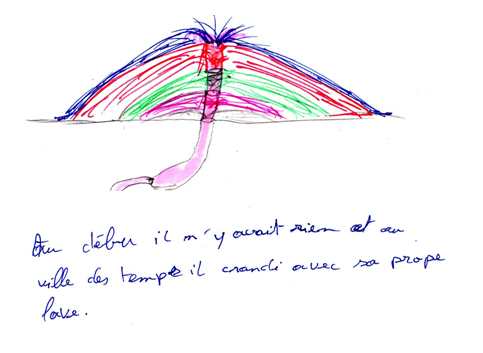 Au début il n'y avait rien et au
ville des temps il grandi avec sa prope
lave.